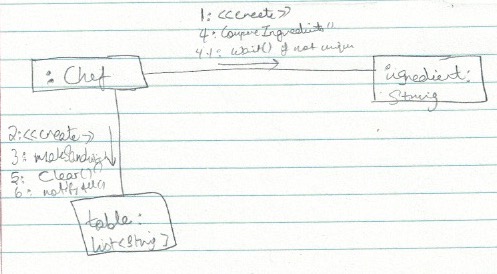 1: <<create>>
4: CompareIngredients()
4.1: wait() if not unique
: Chef
ingredient:
String
2:<<create>>
3: makeSandwich()
5: Clear()
6: notifyAll()
table:
List<String>